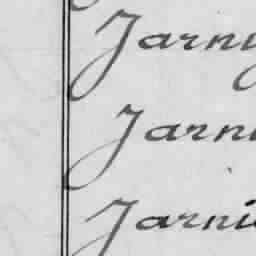 Jarny
Jarn
Jarni